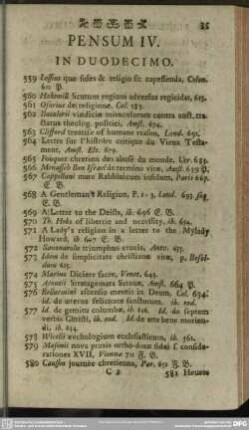 35
PENSUM IV.
IN DUODECIMO.
559 Lessius quæ fides & religio sit capessenda, Colon.
611 P.
560 Hakewill Scutum regium adversus regicidas, 613.
561 Osorius de religione. Col. 585.
562 vindiciæ miraculorum contra auct. tra-
ctatus theolog. politici, Amst. 674.
563 Clifford treatise of humane reason, Lond. 691.
564 Lettre sur l'histoire critique du Vieux Testa-
ment, Amst. Elz.
565 Fouquet chretien des abusé du monde, Utr. 653.
566 Menasseh Ben Israel de termino vitæ, Amst. 639 P.
567 Cappellani mare Rabbinicum infidum, Paris 667.
E. B.
568 A Gentleman's Religion, P. 1-3, Lond. 693. sqq
E. B.
569 A Letter to the Deists, ib. 696 E. B.
570 Th. Hobs of libertie and necessity, ib. 654.
571 A Lady's religion in a letter to the Mylady
Howard, ib. 697 E. B.
572 Savonarola triumphus crucis, Antv. 633.
573 Idem de simplicitate christianæ vitæ, p.
574 Marius Diciere sacre, Venet. 643.
575 Acontii Stratagemata Satanæ, Amst. 664 P.
576 Bellarmini ascensio mentis in Deum, Col. 634.
Id. de æterna felicitate sanctorum. ib. eod.
577 Id. de gemitu columbæ, ib. 626. Id. de septem
verbis Christi, ib. eod. Id. de arte bene morien-
di, ib. 634.
578 Wicelii exchologium ecclesiasticum, ib. 561.
579 Masenii nova praxis ortho-doxæ fidei s. conside-
rationes XVII, Viennæ 70 F. B.
580 Caussin journée chretienne, Par. 651 F. B.
C 2 581 Heures